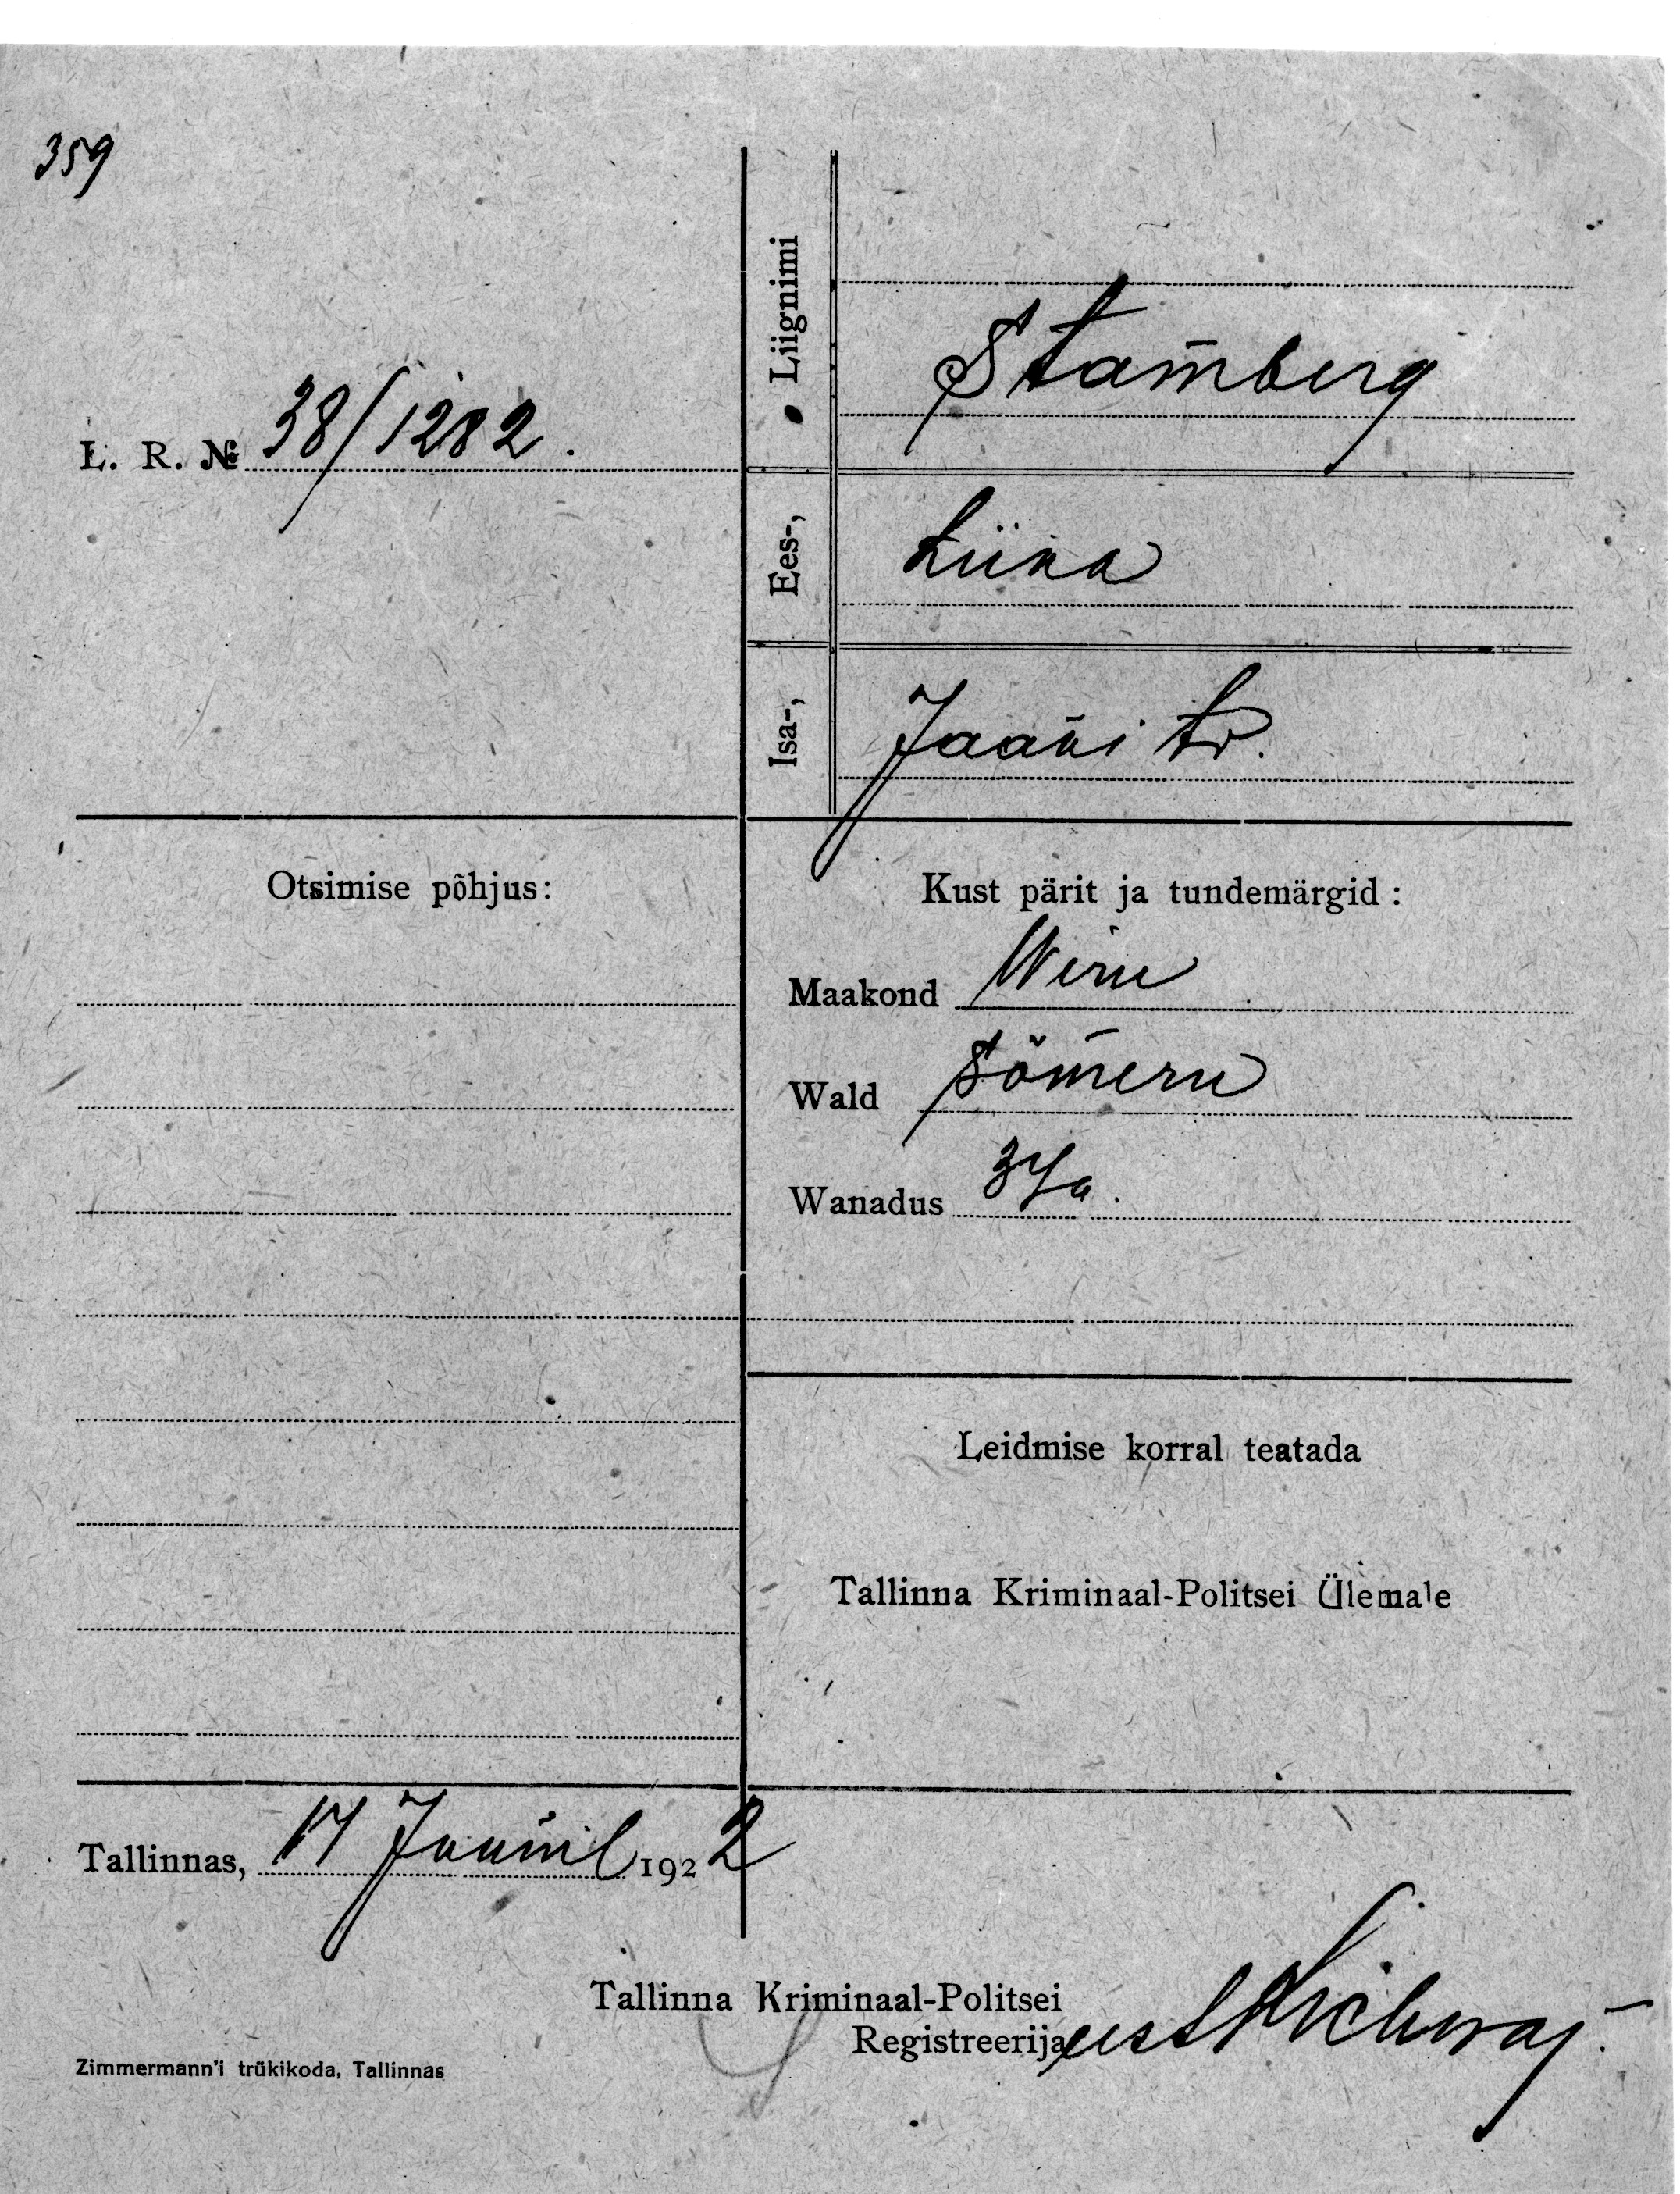 359
L. R. № 38/1282.
Liignimi Stamberg
Ees-, Liina
Isa-, Jaani tr.
Otsimise põhjus:
Kust pärit ja tundemärgid:
Maakond Wiru
Wald Sõmeru
Wanadus 37a.
Leidmise korral teatada
Tallinna Kriminaal-Politsei Ülemale
Tallinnas, 17 Juunil 1922
Tallinna Kriminaal-Politsei
Registreerija eest
Zimmermann'i trükikoda, Tallinnas